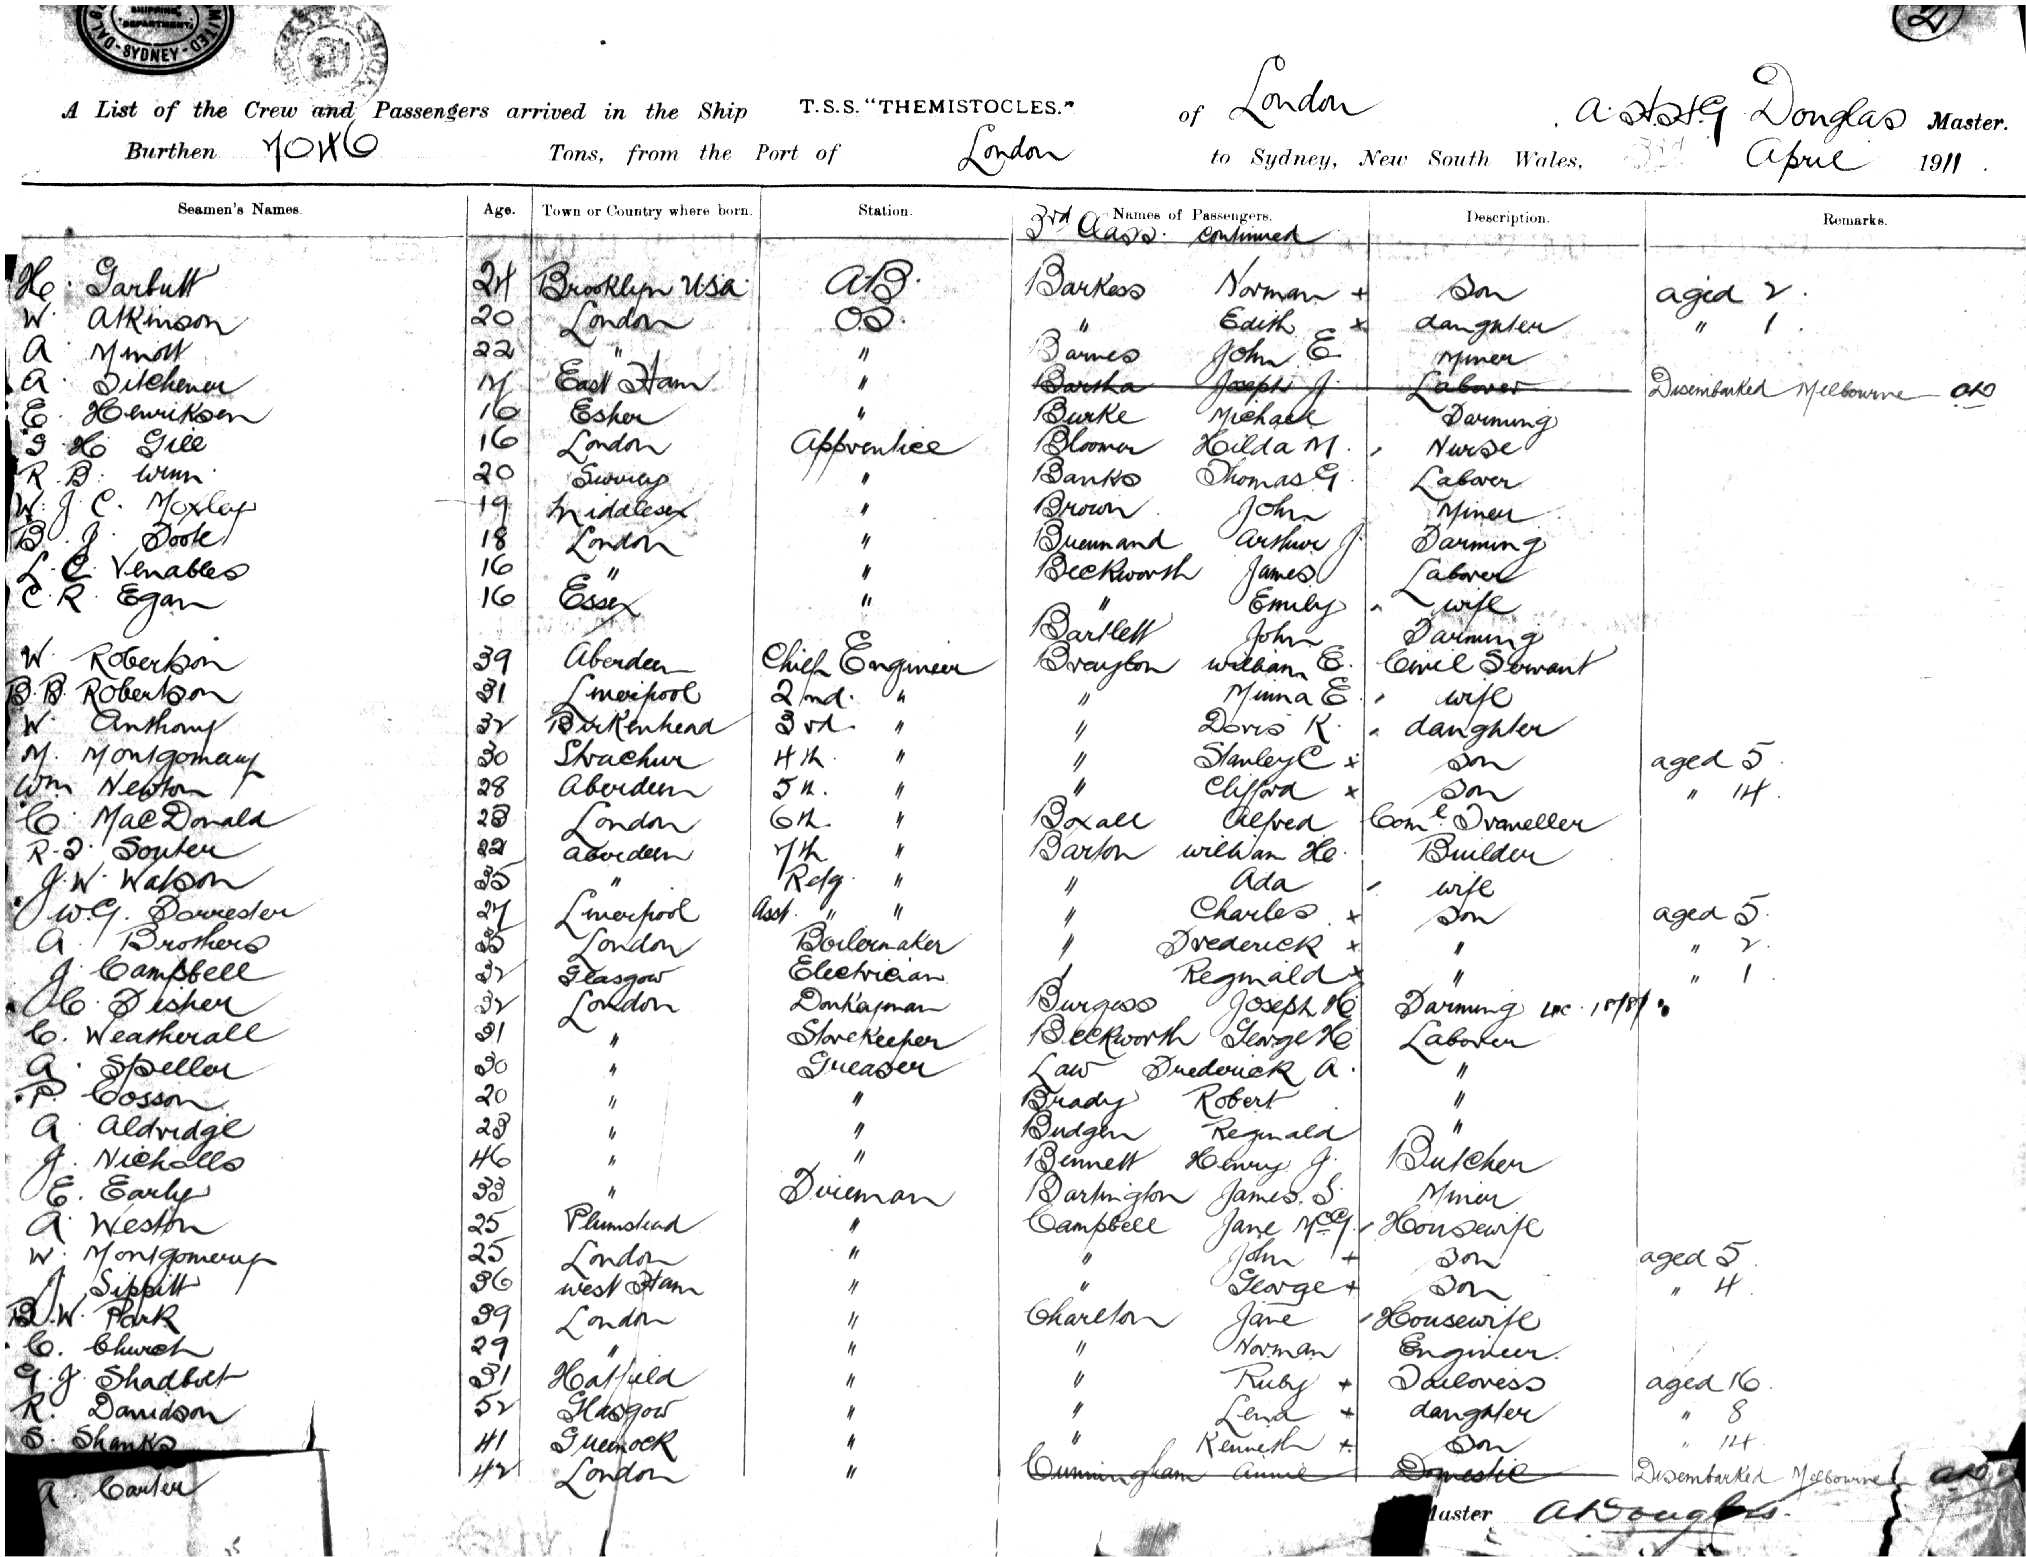 SHIPPING
DEPARTMENT
LIMITED
DALG SYDNEY
2
A List of the Crew and Passengers arrived in the Ship T.S.S. "THEMISTOCLES." of London A. H.H.G Douglas Master.
Burthen 7046 Tons, from the Port of London to Sydney, New South Wales, 3rd April 1911.
Seamen's Names. Age. Town or Country where born. Station. Names of Passengers. Description. Remarks.
3rd Class. continued
H. Garbutt 24 Brooklyn USA. A.B. Barkess Norman + Son aged 2.
W. Atkinson 20 London O.S. " Edith x daughter " 1.
A. Minott 22 " " Barnes John E. Miner
A. Ditchener 17 East Ham " Bartha Joseph J. Laborer Disembarked Melbourne AD
E. Henriksen 16 Esher " Burke Michael Farming
H. Gill 16 London Apprentice Bloomer Hilda M. Nurse
R. B. Winn 20 Surrey " Banks Thomas G. Laborer
W. J. C. Moxley 19 Middlesex " Brown John Miner
B. J. Foote 18 London " Brennand Arthur J. Farming
L. C. Venables 16 " " Beckworth James Laborer
C. R. Egan 16 Essex " " Emily wife
Bartlett John Farming
W. Robertson 39 Aberdeen Chief Engineer Brayton William E. Civil Servant
B. B. Robertson 31 Liverpool 2nd. " " Minna E. wife
W. Anthony 32 Birkenhead 3rd. " " Doris K. daughter
M. Montgomery 30 Strachur 4th. " " Stanley C x Son aged 5.
Wm Newton 28 Aberdeen 5th. " " Clifford x Son " 14.
C. MacDonald 23 London 6th. " Boxall Alfred Coml. Traveller
R. S. Souter 22 Aberdeen 7th " Barton William H. Builder
J. W. Watson 35 " Refg. " " Ada wife
W. G. Forrester 27 Liverpool Asst. " " " Charles x Son aged 5.
A. Brothers 33 London Boilermaker " Frederick x " " 2.
J. Campbell 32 Glasgow Electrician " Reginald x " " 1.
C. Fisher 32 London Donkeyman Burgess Joseph H. Farming
C. Weatherall 31 " Storekeeper Beckworth George H. Laborer
A. Speller 30 " Greaser Law Frederick A. "
P. Cosson 20 " " Brady Robert "
A. Aldridge 23 " " Budgen Reginald "
J. Nicholls 46 " " Bennett Henry J. Butcher
E. Early 33 " Fireman Bartington James S. Miner
A. Weston 25 Plumstead " Campbell Jane McG. Housewife
W. Montgomery 25 London " " John + Son aged 5.
J. Sippitt 36 West Ham " " George + Son " 4.
B. W. Park 39 London " Charlton Jane Housewife
C. Church 29 " " " Norman Engineer.
G. J. Shadbolt 31 Hatfield " " Ruby + Tailoress aged 16.
R. Davidson 52 Glasgow " " Lena + daughter " 8
S. Shanks 41 Greenock " " Kenneth + Son " 14
A. Carter 42 London " Cunningham Annie Domestic Disembarked Melbourne AD
Master A Douglas.